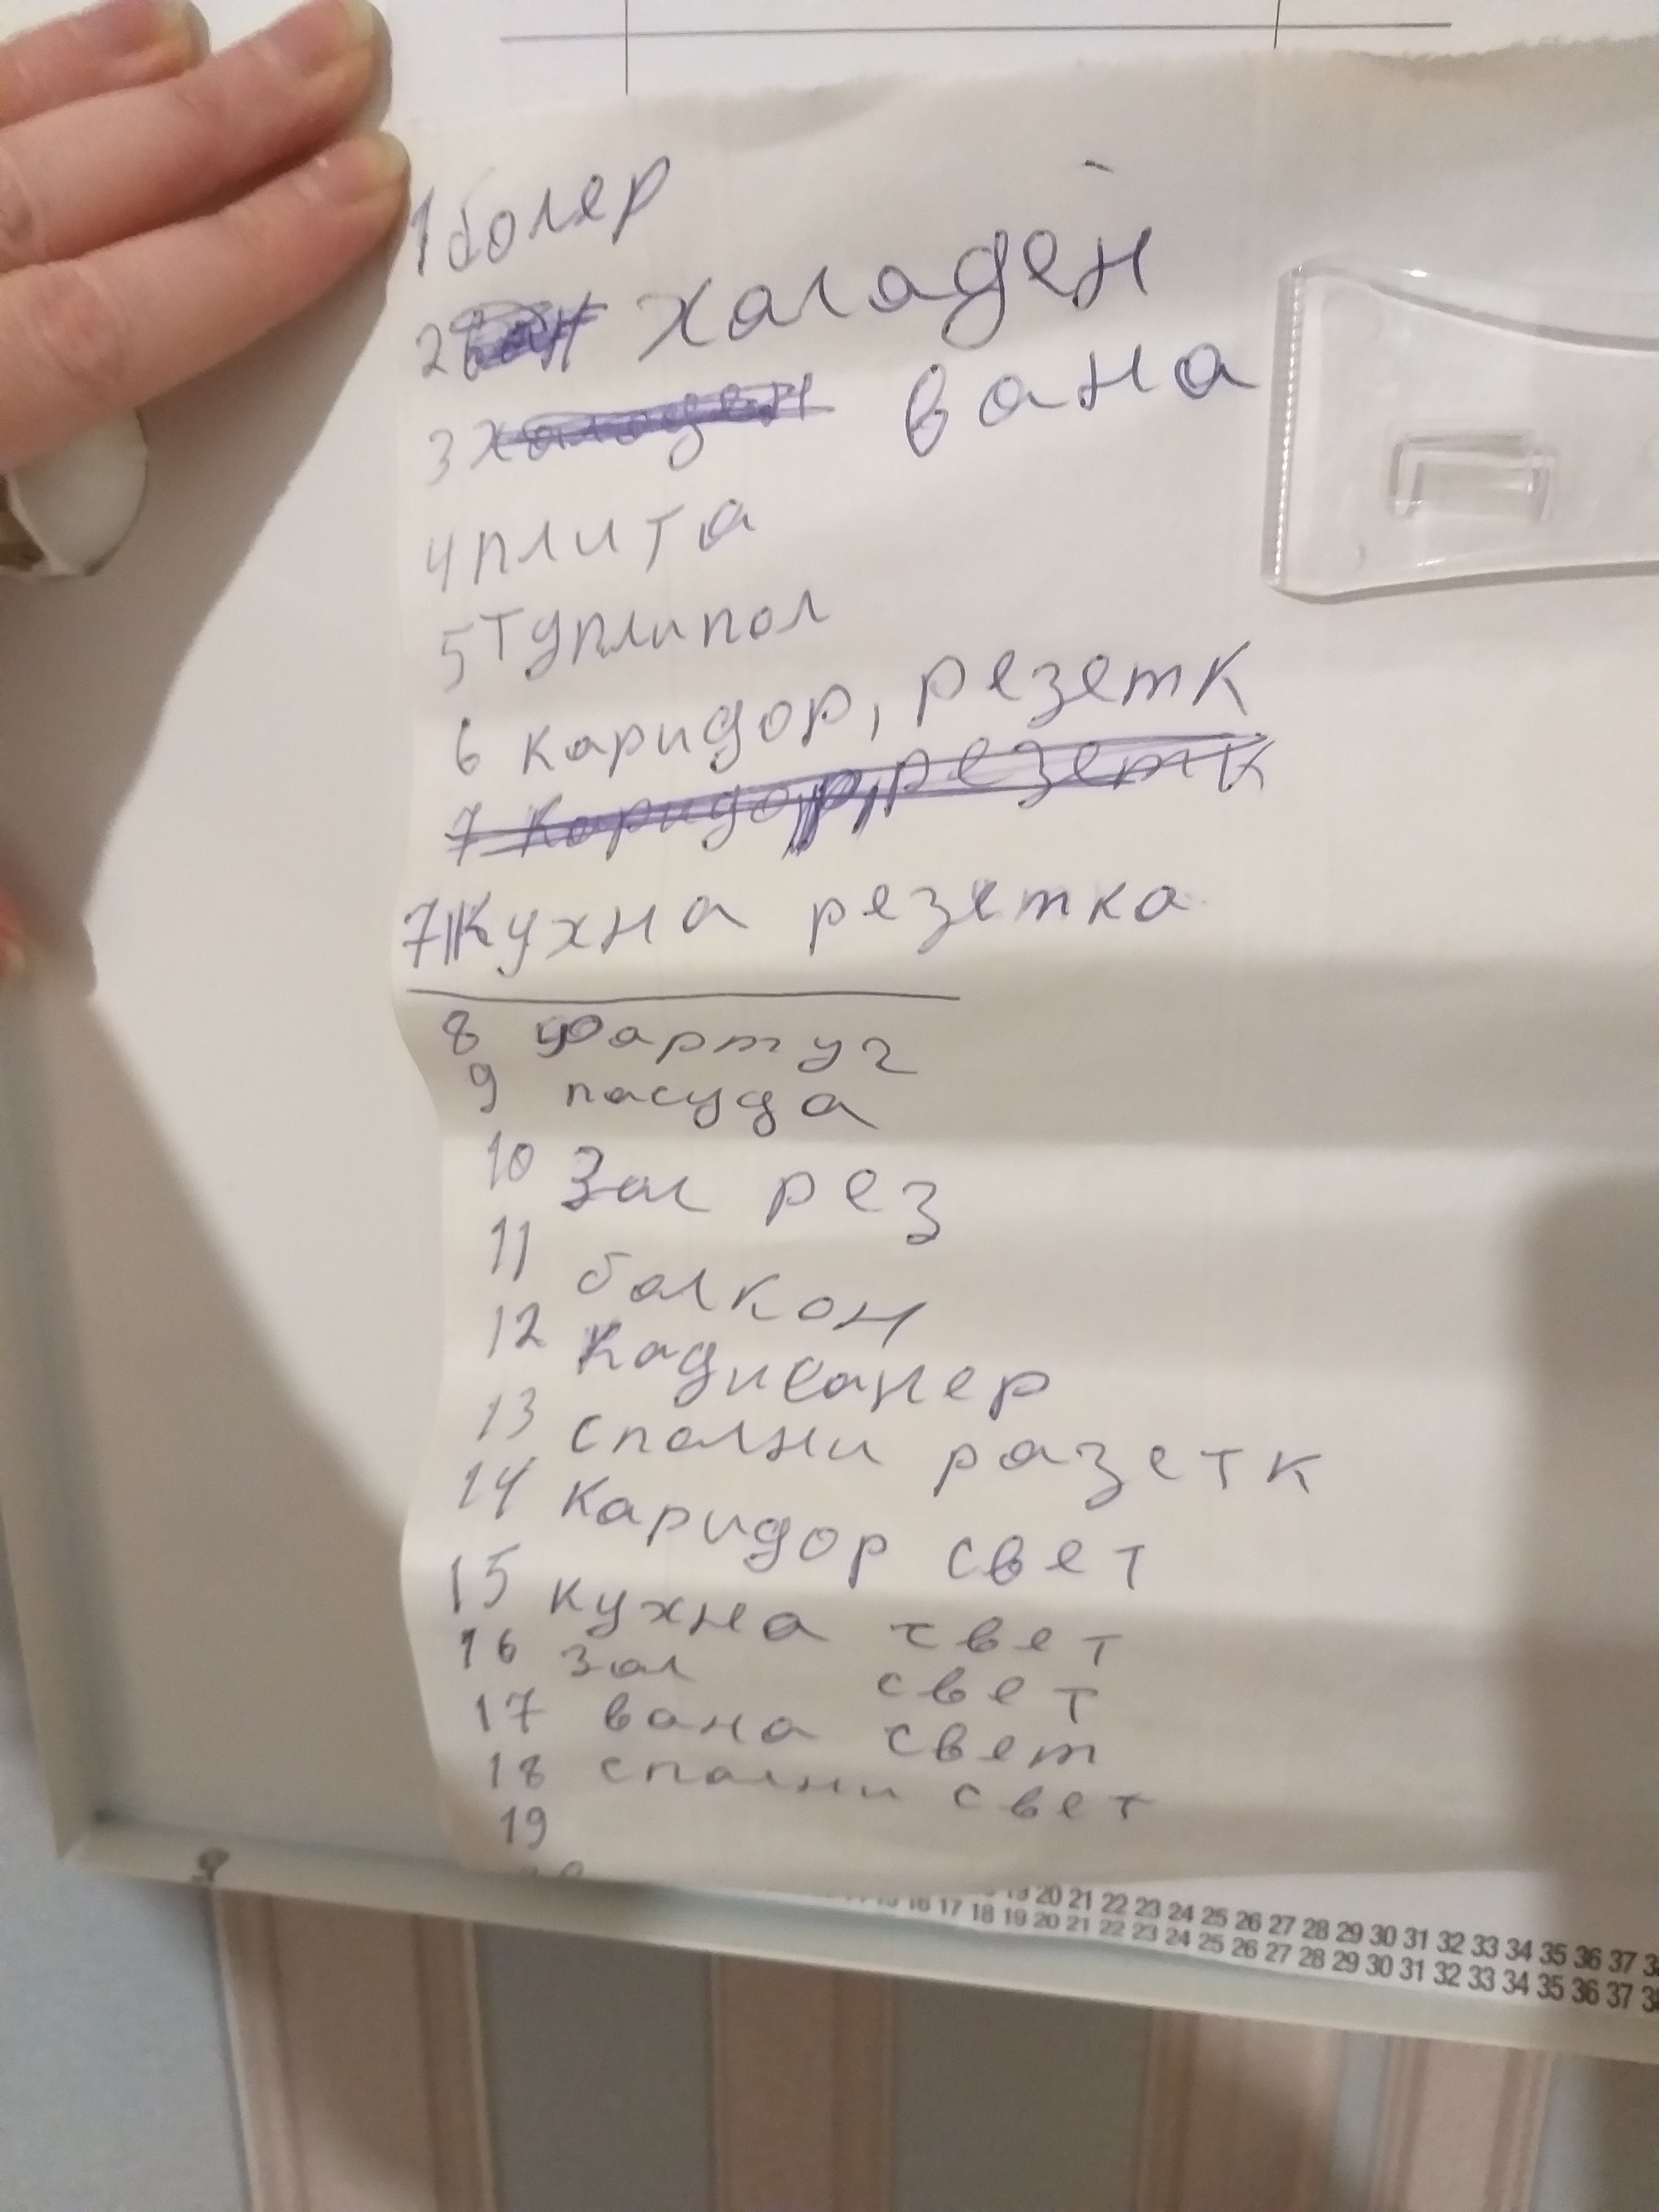 1 болер
2 халадей
3 вана
4 плита
5 туплипол
6 каридор, резетк
7 Каридор, резетк
7 Кухна резетка
8 фартуг
9 пасуда
10 Зал рез
11 балкон
12 Кадисанер
13 спални разетк
14 Каридор свет
15 кухна свет
16 зал свет
17 вана свет
18 спални свет
19
19 20 21 22 23 24 25 26 27 28 29 30 31 32 33 34 35 36 37
16 17 18 19 20 21 22 23 24 25 26 27 28 29 30 31 32 33 34 35 36 37